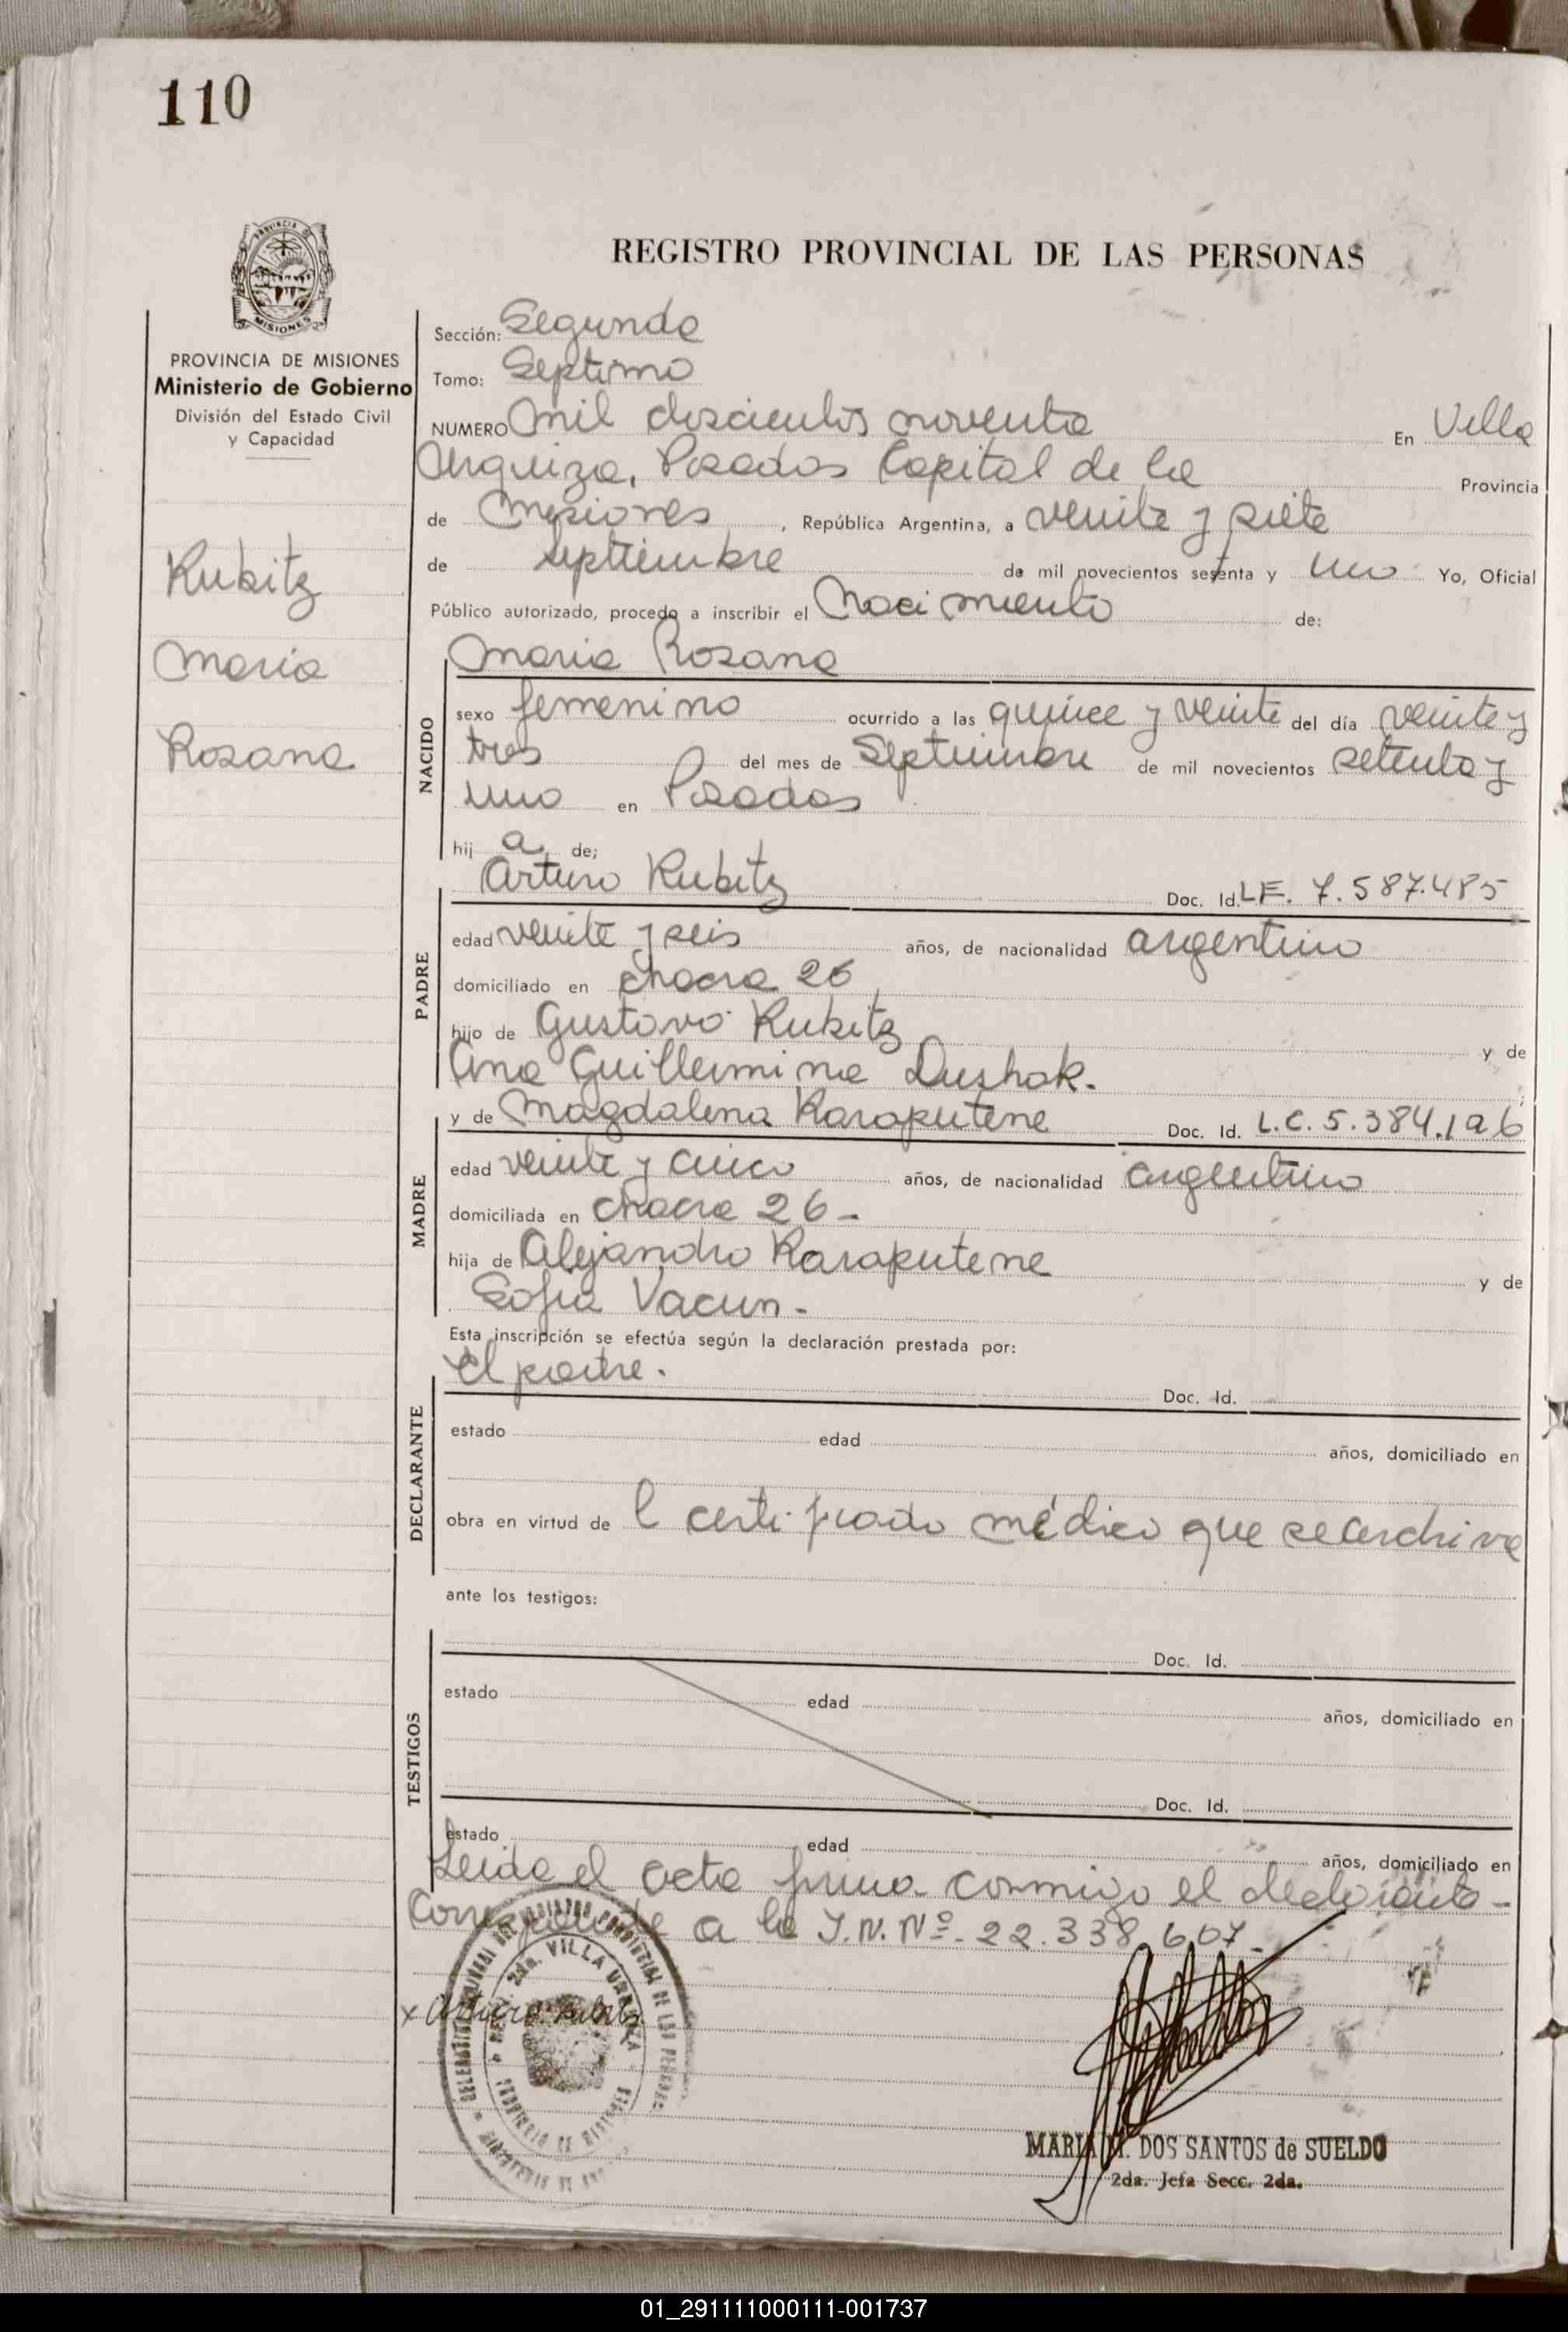 110
REGISTRO PROVINCIAL DE LAS PERSONAS
PROVINCIA DE MISIONES
Ministerio de Gobierno
División del Estado Civil
y Capacidad
Kubitz
Maria
Rosana
Sección: Segunda
Tomo: Septimo
NUMERO Mil doscientos noventa En Villa
Urquiza, Posadas Capital de la Provincia
de Misiones, República Argentina, a veinte y siete
de Septiembre de mil novecientos sesenta y uno Yo, Oficial
Público autorizado, procedo a inscribir el Nacimiento de:
Maria Rosana
NACIDO
sexo femenino ocurrido a las quince y veinte del día veinte y
tres del mes de Septiembre de mil novecientos setenta y
uno en Posadas
hij a de;
Arturo Kubitz Doc. Id. L.E. 7.587.485
PADRE
edad veinte y seis años, de nacionalidad argentino
domiciliado en chacra 26
hijo de Gustavo Kubitz y de
Ana Guillermina Dushak.
y de Magdalena Karaputene Doc. Id. L.C. 5.384.196
MADRE
edad veinte y cinco años, de nacionalidad argentino
domiciliada en chacra 26 -
hija de Alejandro Karaputene y de
Sofia Vacun -
Esta inscripción se efectúa según la declaración prestada por:
El padre.
Doc. Id.
DECLARANTE
estado edad años, domiciliado en
obra en virtud de l certificado médico que se archiva
ante los testigos:
Doc. Id.
TESTIGOS
estado edad años, domiciliado en
Doc. Id.
estado edad años, domiciliado en
Leida el acta firma conmigo el declarante -
Corresponde a la I.N. Nº 22.338.607 -
x Arturo Kubitz
2da. VILLA URQUIZA
MARIA M. DOS SANTOS de SUELDO
2da. Jefa Secc. 2da.
01_291111000111-001737